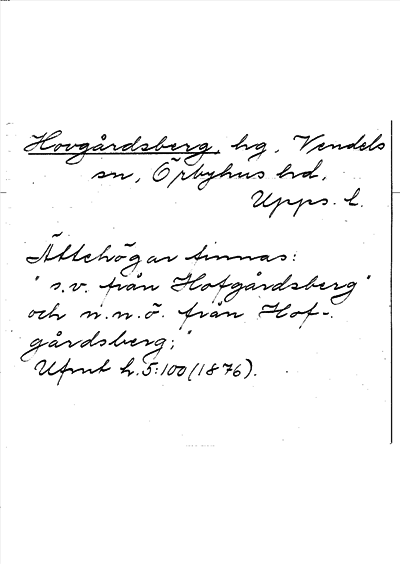 Hovgårdsberg, hg, Vendels
sn, Örbyhus hd,
Upps. l.
Ättehögar finnas:
" s.v. från Hofgårdsberg"
och n.n.ö. från Hof-
gårdsberg;"
Ufmt h. 5:100 (1876).